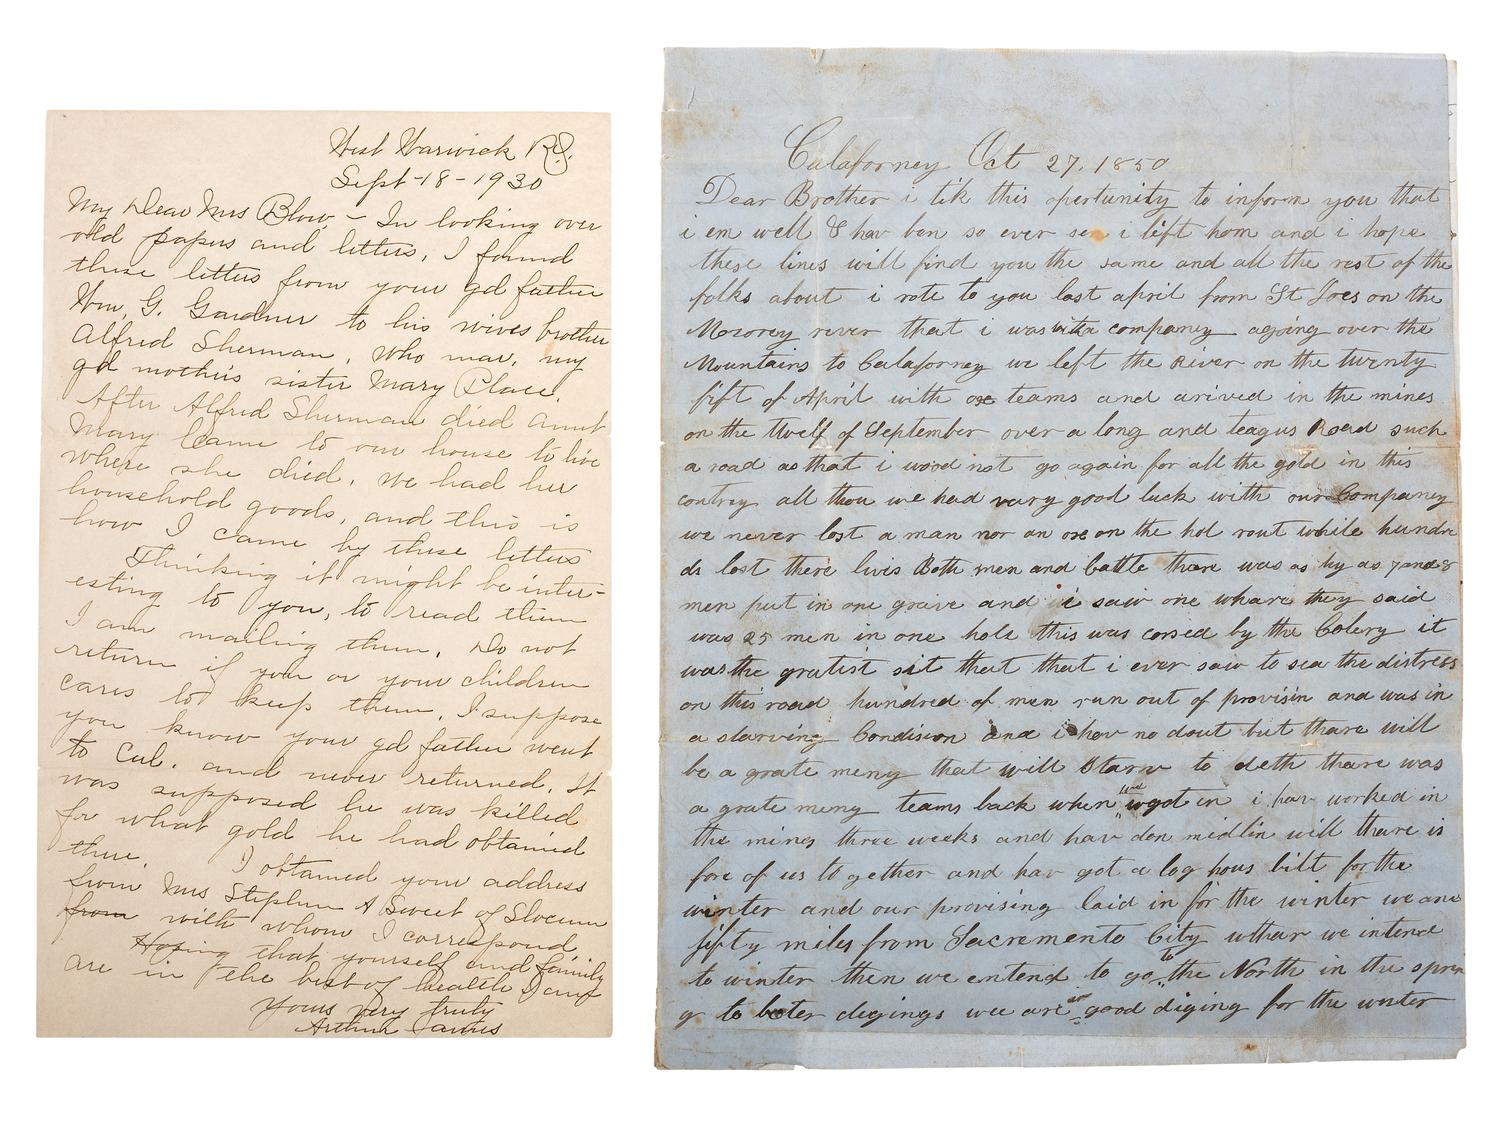 West Warwick R.I.
Sept-18-1930
My Dear Mrs Blow, - In looking over
old papers and letters, I found
these letters from your gd father
Wm, G. Gardner to his wives brother
Alfred Sherman, who mar, my
gd mother's sister Mary Place.
After Alfred Sherman died Aunt
Mary came to our house to live
where she died, we had her
household goods, and this is
how I came by these letters
Thinking it might be inter-
esting to you, to read them
I am mailing them. Do not
return if you or your children
cares to keep them. I suppose
you know your gd father went
to Cal. and never returned. It
was supposed he was killed
for what gold he had obtained
there. I obtained your address
from Mrs Stephen A Sweet of Slocum
from with whom I correspond
Hoping that yourself and family
are in the best of health I am
Yours Very truly
Arthur
Calaforney Oct 27, 1850
Dear Brother i tik this opertunity to inform you that
i em well & hav ben so ever sen i lift hom and i hope
these lines will find you the same and all the rest of the
folks about i rote to you last april from St Joes on the
Mosorey river that i was with a compeney agoing over the
Mountains to Calaforney we left the River on the twenty
fift of April with oxe teams and arived in the mines
on the twelf of September over a long and teagus Road such
a road as that i wood not go again for all the gold in this
contrey all thou we had vary good luck with our Compeney
we never lost a man nor an oxe on the hol rout while hundre
ds lost there livis Both men and Cattle thare was as hy as 7 and 8
men put in one graive and i saw one whare they said
was 25 men in one hole this was corsed by the Colery it
was the gratist sit that that i ever saw to sea the distress
on this road hundred of men run out of provisin and was in
a starving Condision and i hav no dout but thare will
be a grate meny that will Starv to deth thare was
a grate meny teams back when we got in i hav worked in
the mines three weeks and hav don midlin will thare is
fore of us to gether and hav got a log hous bilt for the
winter and our provising laid in for the winter we are
fifty miles from Sacremento City whar we intend
to winter then we entend to go to the North in the sprin
g to beter digings wee are in good diging for the winter